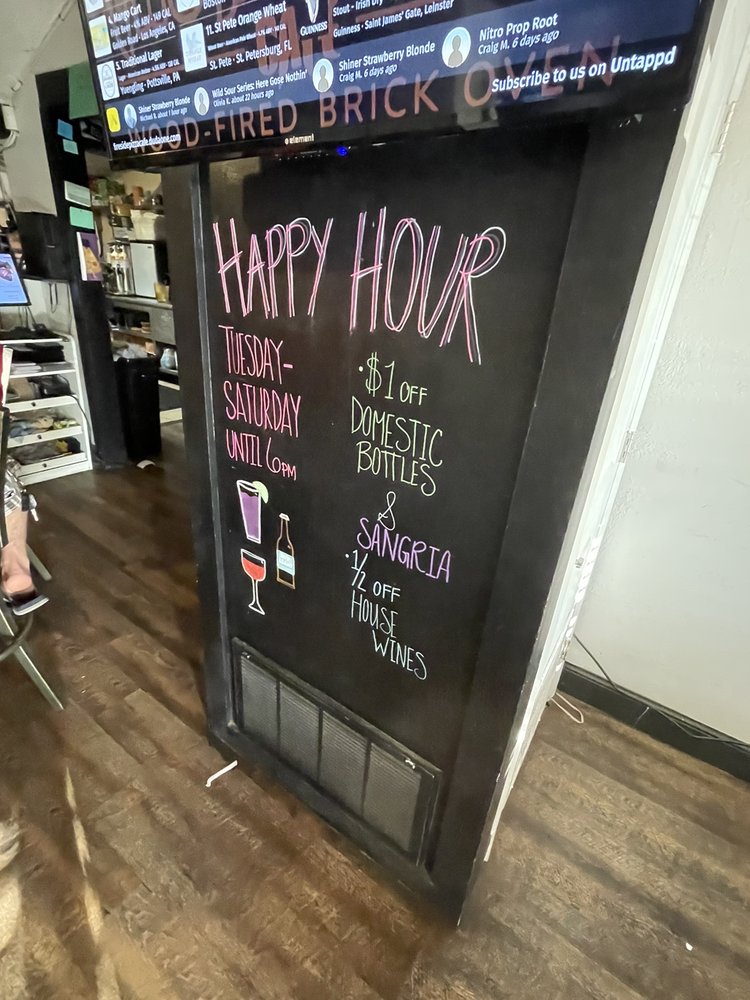 4. Mango Cart
Golden Road · Los Angeles, CA
5. Traditional Lager
Yuengling · Pottsville, PA
11. St Pete Orange Wheat
St. Pete · St. Petersburg, FL
GUINNESS
Stout - Irish Dry
Guinness · Saint James' Gate, Leinster
Shiner Strawberry Blonde
Michael R. about 1 hour ago
Wild Sour Series: Here Gose Nothin'
Olivia K. about 22 hours ago
Shiner Strawberry Blonde
Craig M. 6 days ago
Nitro Prop Root
Craig M. 6 days ago
Subscribe to us on Untappd
WOOD-FIRED BRICK OVEN
element
HAPPY HOUR
TUESDAY-
SATURDAY
UNTIL 6PM
• $1 OFF
DOMESTIC
BOTTLES
&
SANGRIA
• 1/2 OFF
HOUSE
WINES